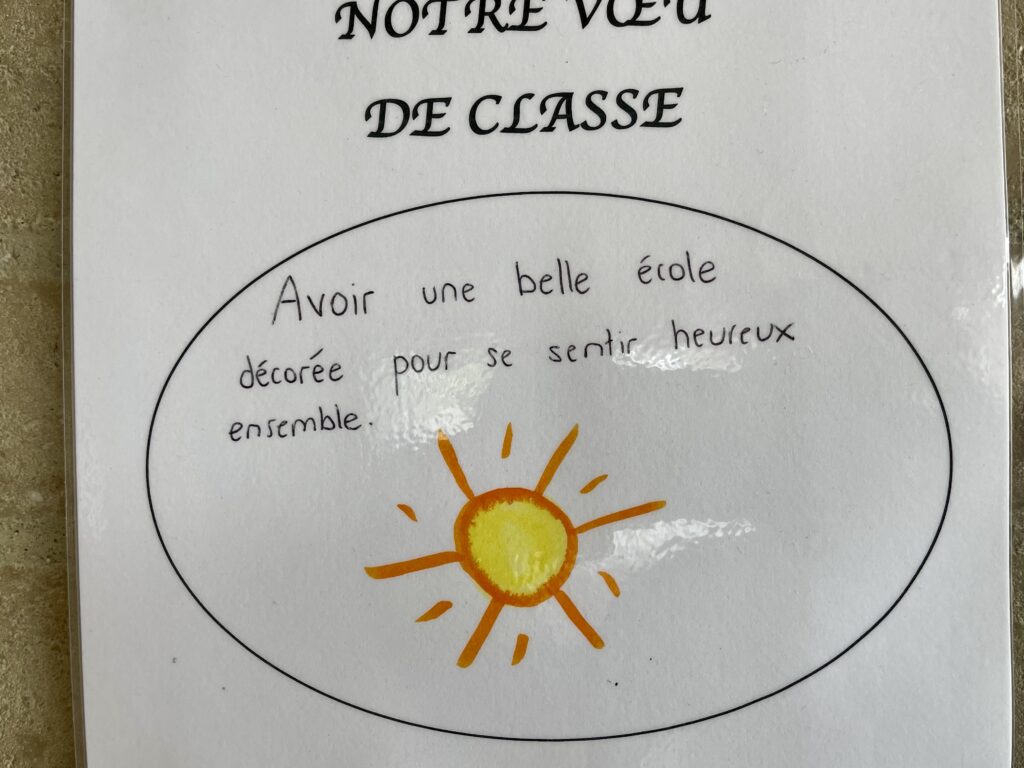 NOTRE VŒU
DE CLASSE
Avoir une belle école
décorée pour se sentir heureux
ensemble.